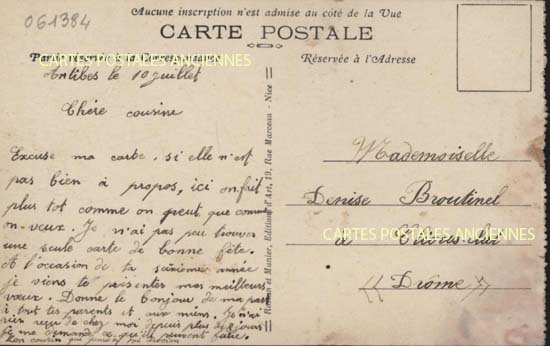 061384
Aucune inscription n'est admise au côté de la Vue
CARTE POSTALE
Réservée à l'Adresse
CARTES POSTALES ANCIENNES
Antibes le 10 juillet
Chère cousine
Excuse ma carte. si elle n'est
pas bien à propos, ici on fait
plus tot comme on peut que comme
on veux. Je n'ai pas peu trouver
une seule carte de bonne fête.
A l'occasion de ta année
je viens te présenter mes meilleurs
vœux. Donne le bonjour de ma part
à tout tes parents et aux miens. Je n'ai
rien reçu de chez moi depuis plus de 8 jours
je me demande ce qu'ils peuvent faire.
Ton cousin qui
19, Rue Marceau - Nice
Mademoiselle
Denise Broutinel
CARTES POSTALES ANCIENNES
à
((Drôme))